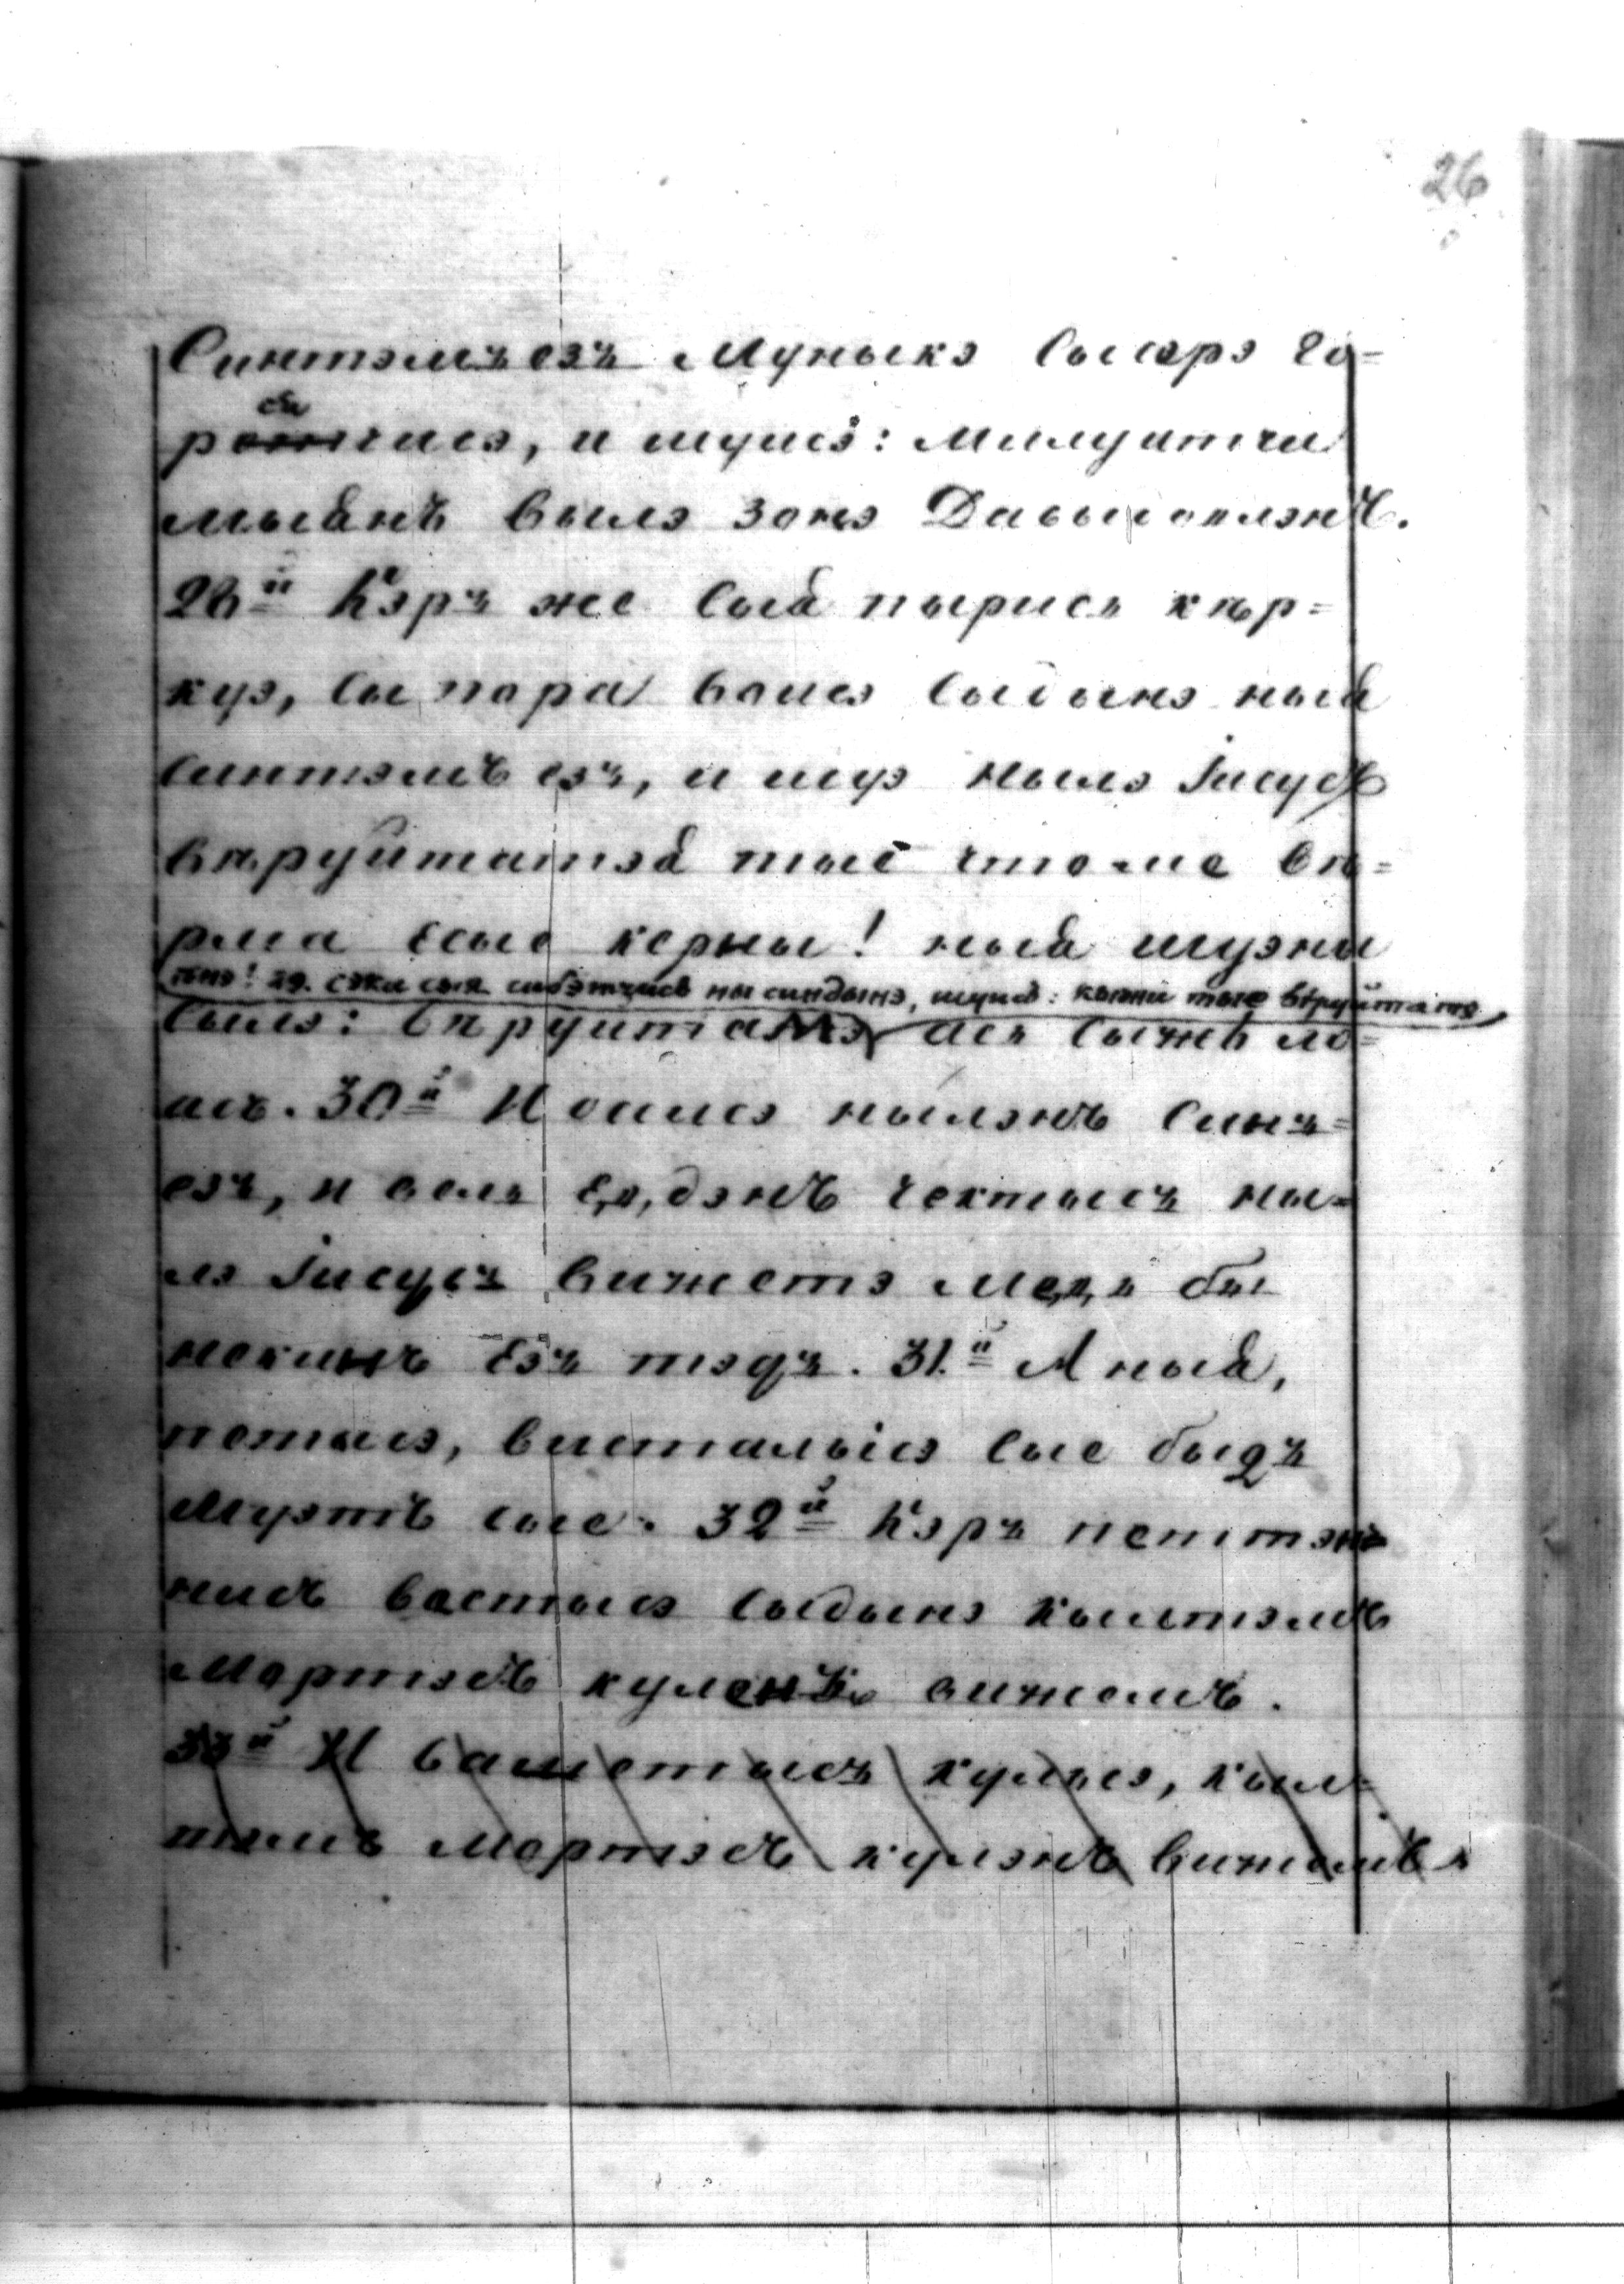 26
Синтэмъ езъ Муныкэ Сысэрэ го=
ратчисэ, и шуисэ: Милуитчи
мыйнъ вылэ зонэ Давыдоплэнъ.
28й Кэръ же Сый пырисъ кѣр=
куэ, Сы пора воисэ Сыдынэ ный
синтэмъ езъ, и шуэ нылэ Іисусъ
вѣруйтатэй тые что ме вѣ=
рма Сыэ керны! ный шуэны
тэнэ! 29. Сэки сыя инбэтчисъ ны синдынэ, шуисъ: кытчи тые вѣруйтатэ
Сылэ: Вѣруйтамэ ась Сыжъ ло=
ась. 30й И оисэ нылэнъ Синъ=
езъ, и вель ед,дэнъ чектысъ ны=
лэ Іисусъ вижетэ мед,ъ бы
некинъ Езъ тэдъ. 31.й А ный,
петысэ, висталысэ сые быдъ
Муэтъ сые. 32й Кэръ петтэнъ=
нысъ вастысэ Сыдынэ Кылтэмъ
Мортэсъ куленъ вижемъ.
33й И вашетысъ кульэ, кыл=
тэмъ Мортэсъ кулэнъ вижемъ